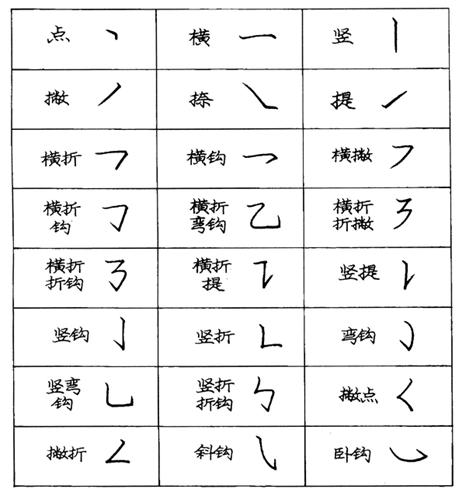 点
横
竖
撇
捺
提
横折
横钩
横撇
横折
钩
横折
弯钩
横折
折撇
横折
折钩
横折
提
竖提
竖钩
竖折
弯钩
竖弯
钩
竖折
折钩
撇点
撇折
斜钩
卧钩